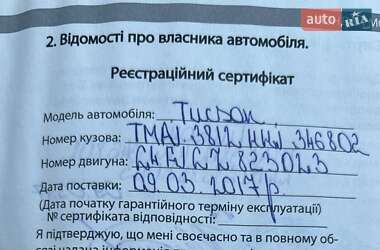 auto RIA
2. Відомості про власника автомобіля.
Реєстраційний сертифікат
Модель автомобіля: Tucson
Номер кузова: TMAJ3812HHJ346802
Номер двигуна: 823023
Дата поставки: 09.03.2017р
(Дата початку гарантійного терміну експлуатації)
№ сертифіката відповідності:
Я підтверджую, що мені своєчасно та в повному об-